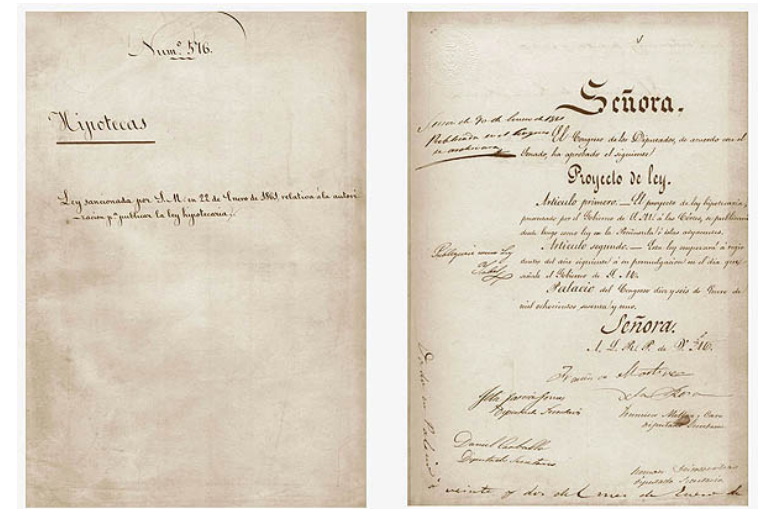 Num.º 576.
Hipotecas
Ley sancionada por S.M. en 22 de Enero de 1861, relativa á la autori-
-zacion p.ª publicar la ley hipotecaria.
Señora.
El Congreso de los Diputados, de acuerdo con el
Senado, ha aprobado el siguiente
Proyecto de ley.
Artículo primero. — El proyecto de ley hipotecaria,
presentado por el Gobierno de V. M. á las Córtes, se publicará
desde luego como ley en la Península é islas adyacentes.
Artículo segundo. — Esta ley empezará á regir
dentro del año siguiente á su promulgacion en el dia que
señale el Gobierno de S. M.
Palacio del Congreso diez y seis de Enero de
mil ochocientos sesenta y uno.
Publíquese como ley
Señora.
A. L. R. P. de V. M.
Diputado Secretario
Diputado Secretario
Daniel Carballo
Diputado Secretario
Diputado Secretario
veinte y dos del mes de Enero de